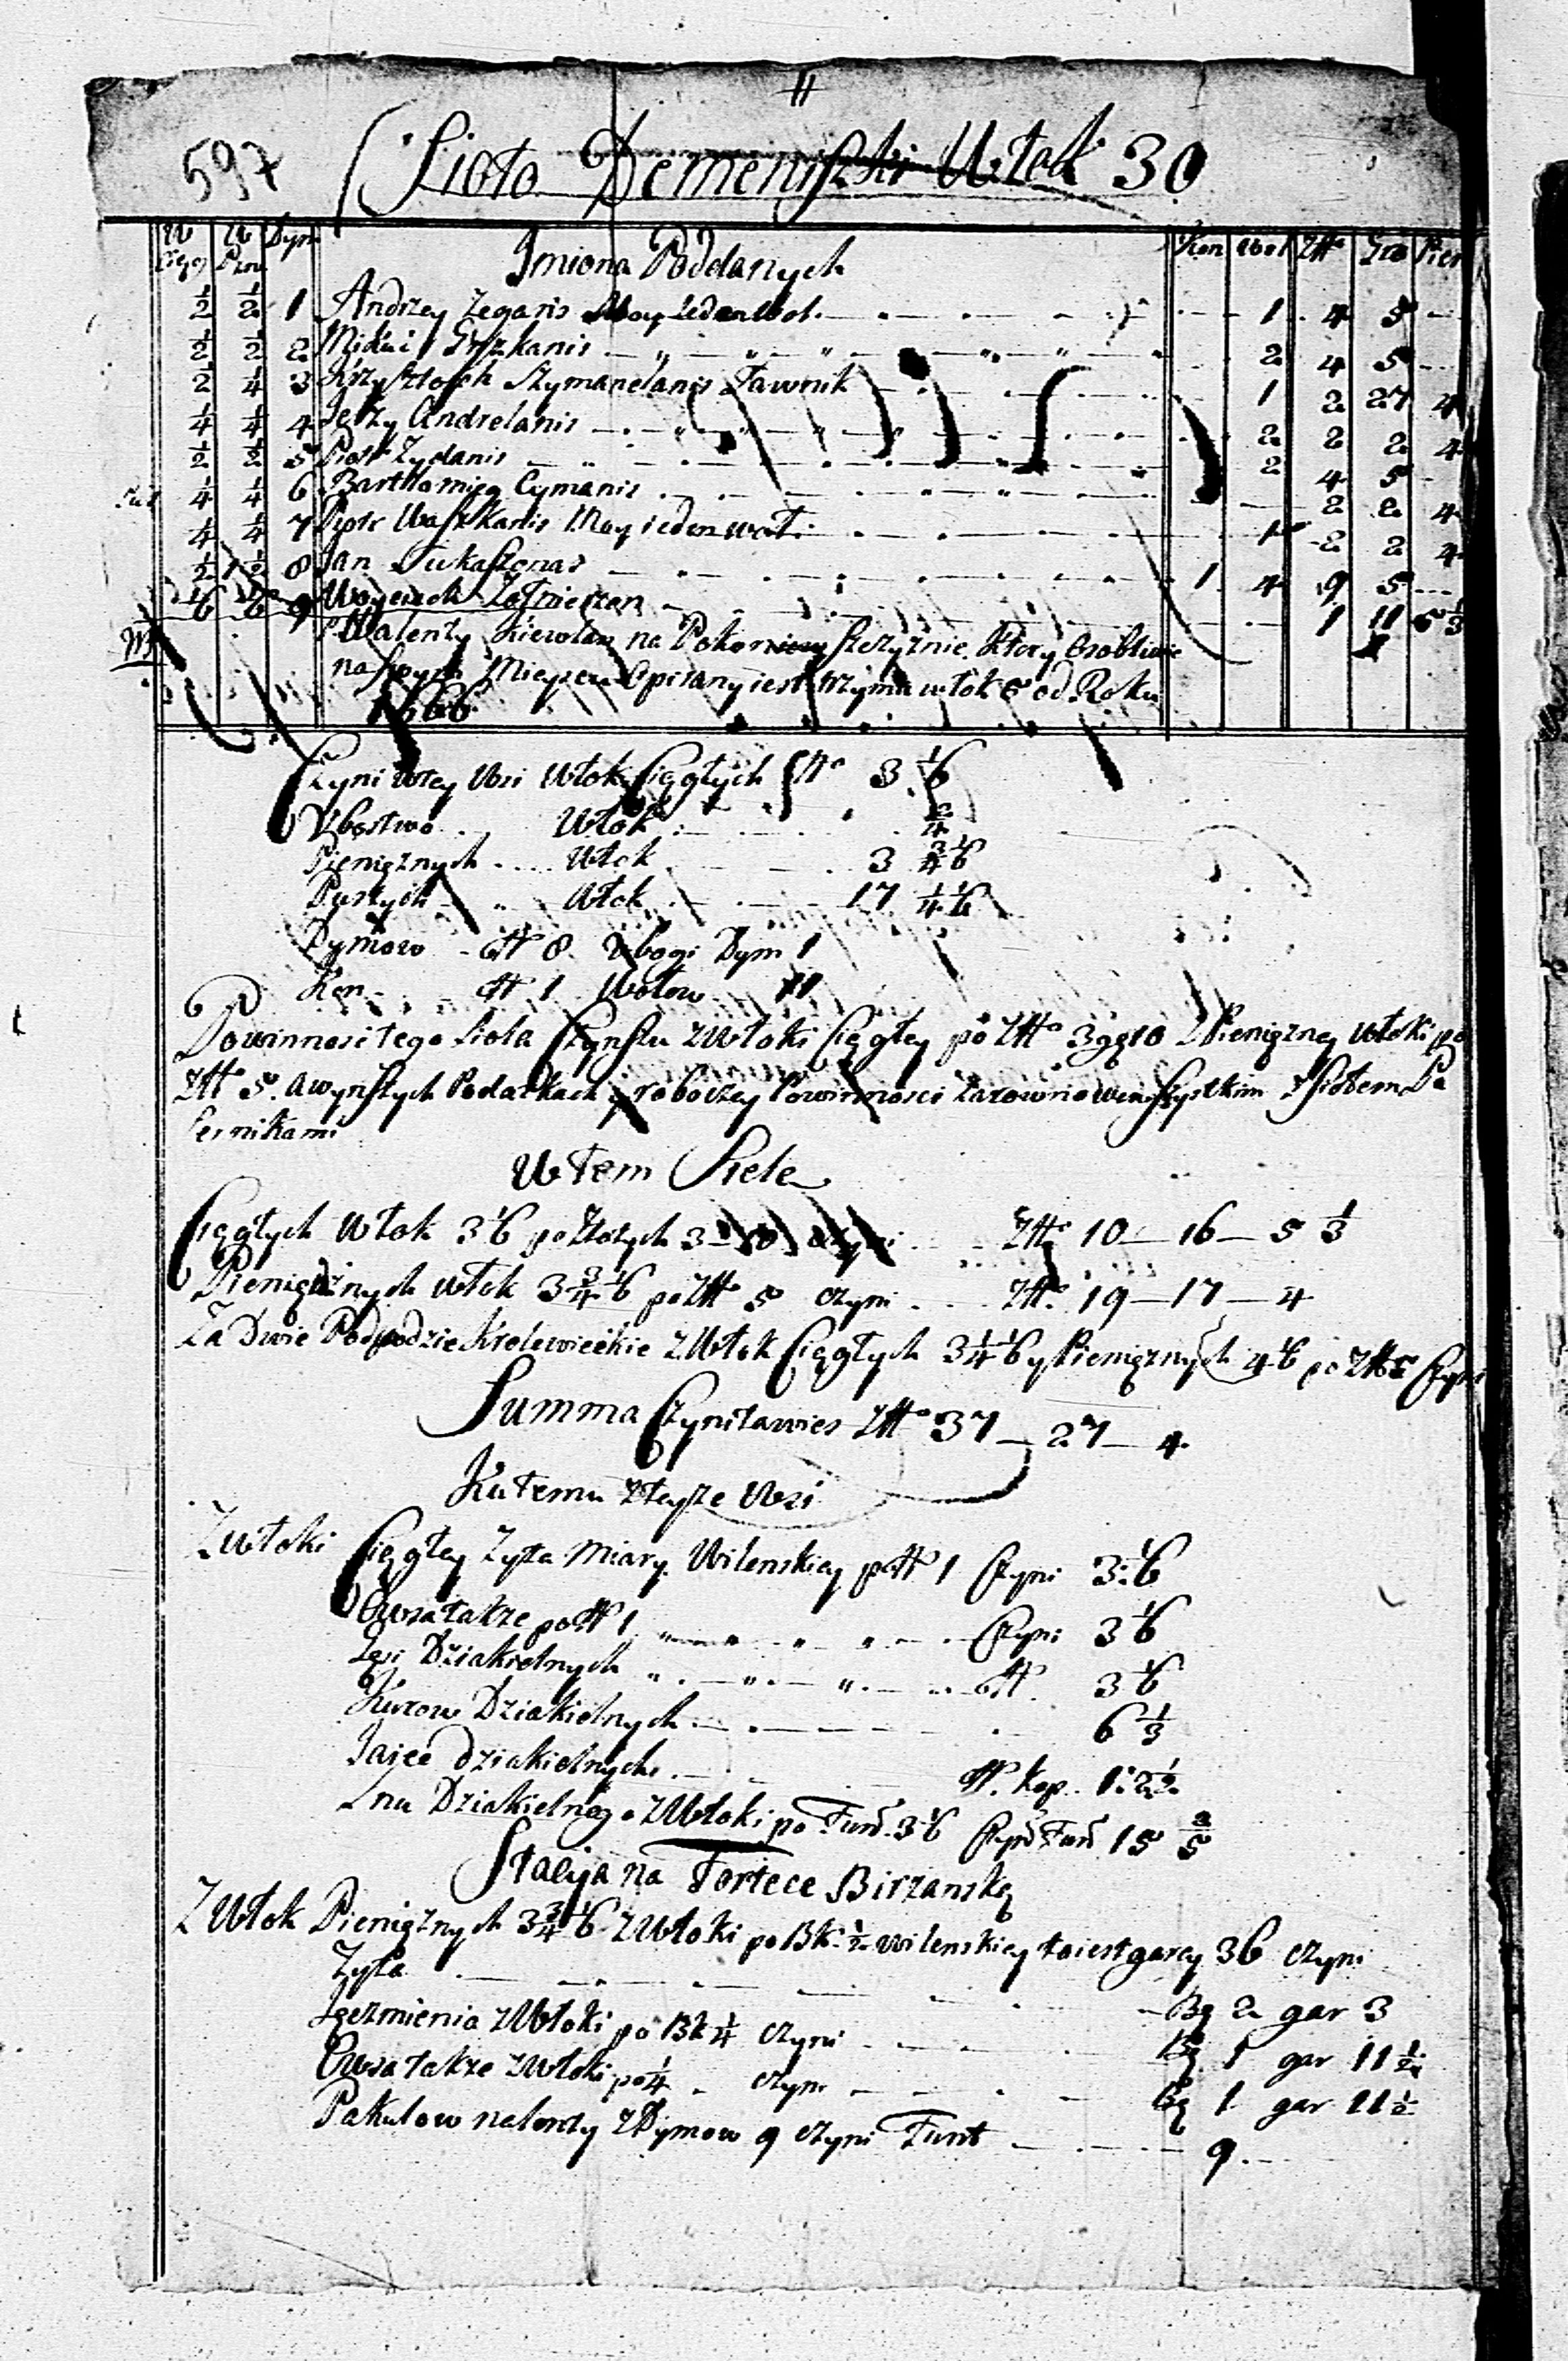 11
597 Sioło Demeniszki Włok 30
W Cięg W Pien Dym Imiona Poddanych Kon Wol Zł Gro Pien
1/2 1/2 1 Andrzey Zegaris May ieden Wol 1 4 5
1/2 1/2 2 Grzkanis 2 4 5
1/2 1/4 3 Krzysztoph Szymanelanis Ławnik 1 2 27 4
1/4 1/4 4 Jerzy Andrelanis 2 2 2 4
1/2 1/2 5 Piotr Zydanis 2 4 5
1/4 1/4 6 Barthłomiey Cymanis 2 2 4
1/4 1/4 7 Piotr Waszkanis May ieden woł 1 2 2 4
1/2 1/2 8 Jan Łukaszonas 1 4 9 5
1/6 1/6 9 Woyciech Zołnierzen 1 11 5 1/3
Walenty na ktory osobliwie
na swym Mieyscu opisany iest trzyma włok 6 od Roku
1666
Czyni w tey Wsi Włok Ciągłych No 3 1/6
Vbostwo Włok 2/4
Pieniężnych Włok 3 3/4 1/6
Pustych Włok 17 1/4 1/6
Dymow No 8 Vbogi Dym 1
Kon No 1 Wołow 11
Powinnosi tego Sioła Czynszu z Włoki Ciągłey po Zł 3 g 10 z Pieniężney Włoki po
Zł 5. a w ynszych Podatkach y roboczey Powinnosci zarowno we wszystkim z Siołem Pa
sernikami
W tem Siele
Ciągłych Włok 3 1/6 po Złotych 3 10 czyni Zł 10 — 16 — 5 1/3
Pieniężnych włok 3 3/4 1/6 po Zł 5 czyni Zł 19 — 17 — 4
Za Dwie Podwodzie Krolewieckie z Włok Ciągłych 3 1/4 1/6 y Pieniężnych 4 1/6 po Zł Czyni
Summa Czyni ta wies Zł 37 — 27 — 4
Ku temu z teyze Wsi
Z włoki Ciągłey Zyta Miary Wilenskiey po No 1 Czyni 3 1/6
Owsa takze po No 1 Czyni 3 1/6
Gęsi Dziakielnych No 3 1/6
Kurow Dziakielnych 6 1/3
Jaiec dziakielnych No kop. 1: 2 1/2
Lnu Dziakielnego z Włoki po Funt 3 1/6 Czyni Funt 15 2/5
Stacyja na Fortece Birzanską
Z Włok Pieniężnych 3 3/4 1/6 z Włoki po Bk 1/2 wilenskiey to iest garcy 36 czyni
Zyta Bz 2 gar 3
Jęczmienia z Włoki po Bk 1/4 czyni Bz 1 gar 11 1/2
Owsa takze z Włoki po 1/4 czyni Bz 1 gar 11 1/2
Pakułow nalezy z Dymow 9 czyni Funt 9